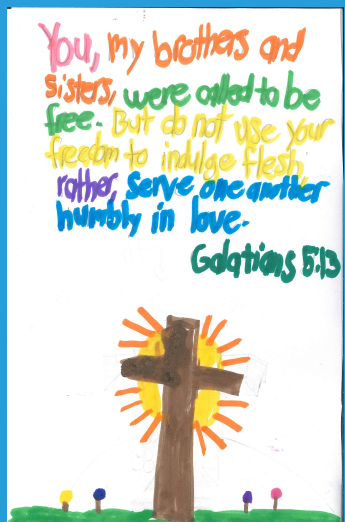 You, my brothers and
sisters, were called to be
free. But do not use your
freedom to indulge flesh
rather, serve one another
humbly in love.
Galatians 5:13